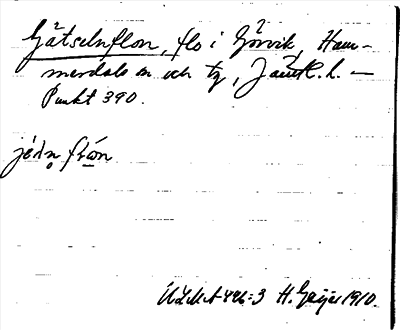 Gåtselnflon, flo i Görvik, Ham-
merdals sn och tg, Jämtl. l. —
Punkt 390.
jéᶅn̥ flón
ULMA 446:3 H. Geijer 1910.